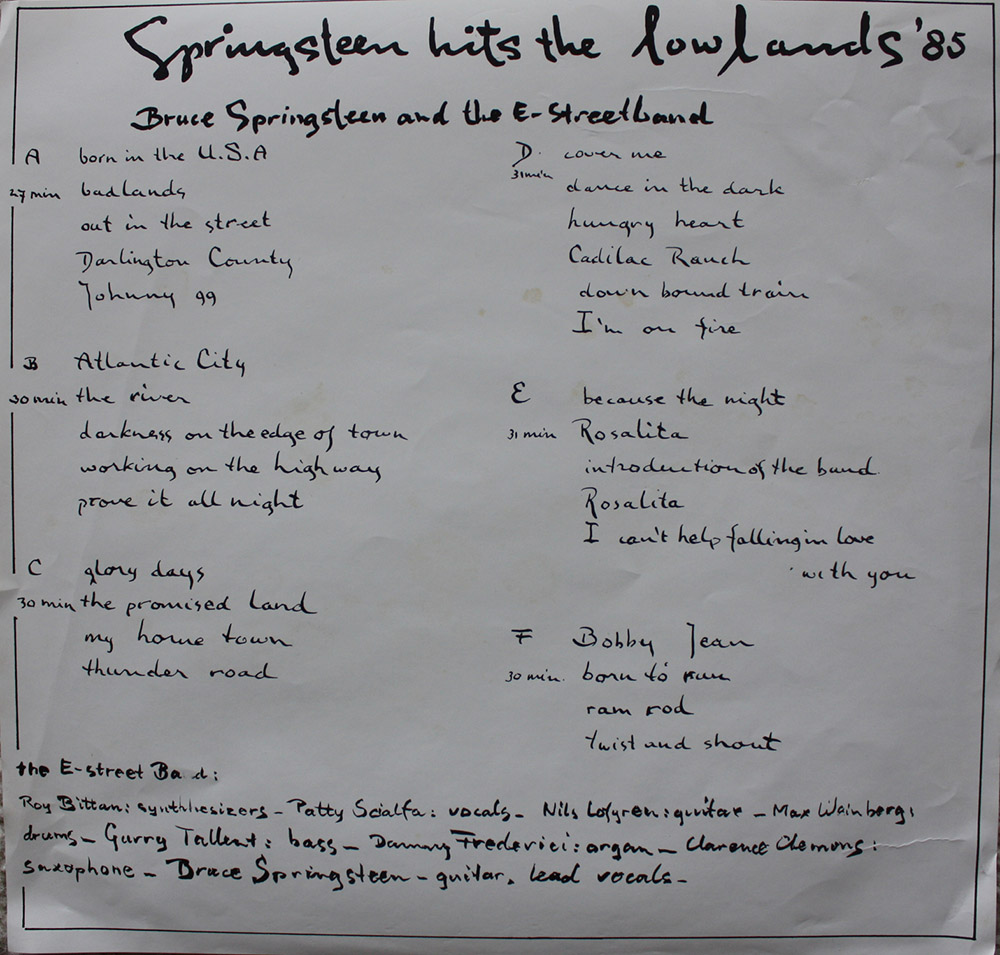 Springsteen hits the lowlands '85
Bruce Springsteen and the E-Streetband
A born in the U.S.A
27 min badlands
out in the street
Darlington County
Johnny 99
B Atlantic City
30 min the river
darkness on the edge of town
working on the highway
prove it all night
C glory days
30 min the promised land
my home town
thunder road
D. cover me
31 min dance in the dark
hungry heart
Cadilac Ranch
down bound train
I'm on fire
E because the night
31 min Rosalita
introduction of the band.
Rosalita
I can't help falling in love
with you
F Bobby Jean
30 min. born to run
ram rod
twist and shout
the E-street Ba d:
Roy Bittan: synthhesizers - Patty Scialfa: vocals - Nils Lofgren: guitar - Max Wainberg:
drums - Garry Tallent: bass - Danny Frederici: organ - Clarence Clemons:
saxophone - Bruce Springsteen - guitar, lead vocals -